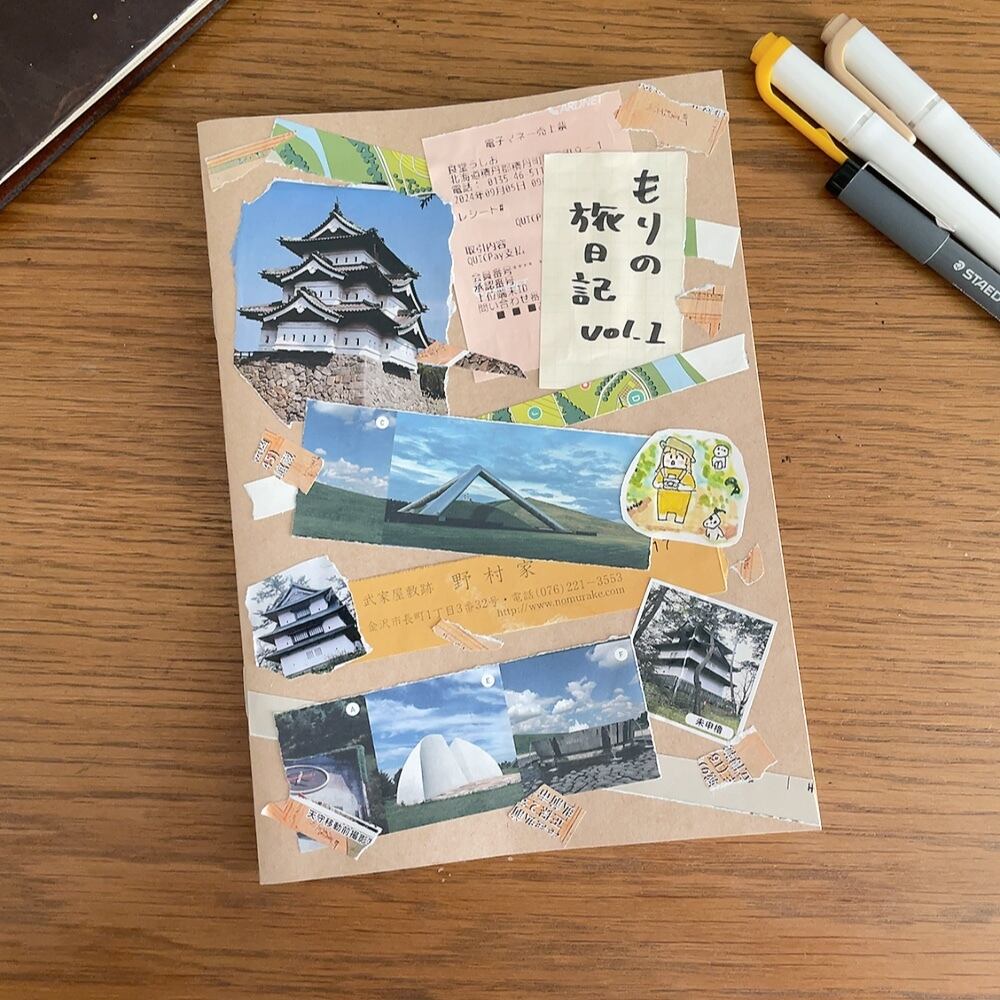 電子マネー売上票
食堂うしお
北海道積丹郡積丹町
電話: 0135 46 511
2024年09月05日 09
レシート#
QUICP
取引内容
QUICPay支払
会員番号****
承認番号
上位端末ID
問い合わせ番
■ ■ ■
もりの
旅日記
vol.1
D
J
C
武家屋敷跡 野村家
金沢市長町1丁目3番32号・電話(076)221-3553
http://www.nomurake.com
未申櫓
A
E
F
天守移動前撮影
STAED